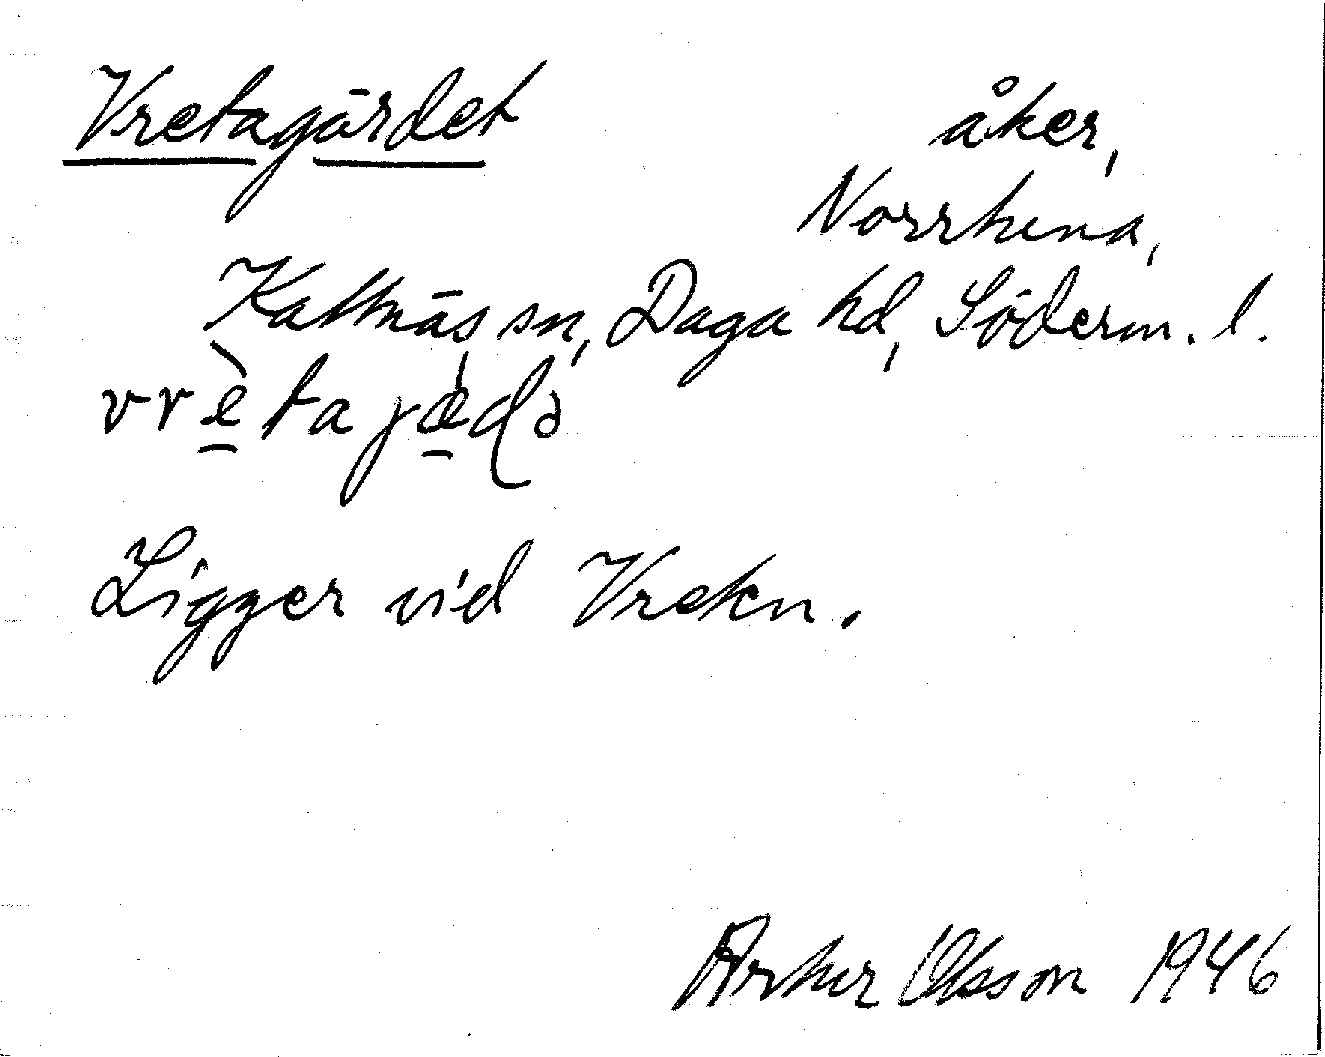 Vretagärdet åker,
Norrhena,
Kattnäs sn, Daga hd, Söderm. l.
vrètajæ̀də
Ligger vid Vreten.
Arthur Olsson 1946